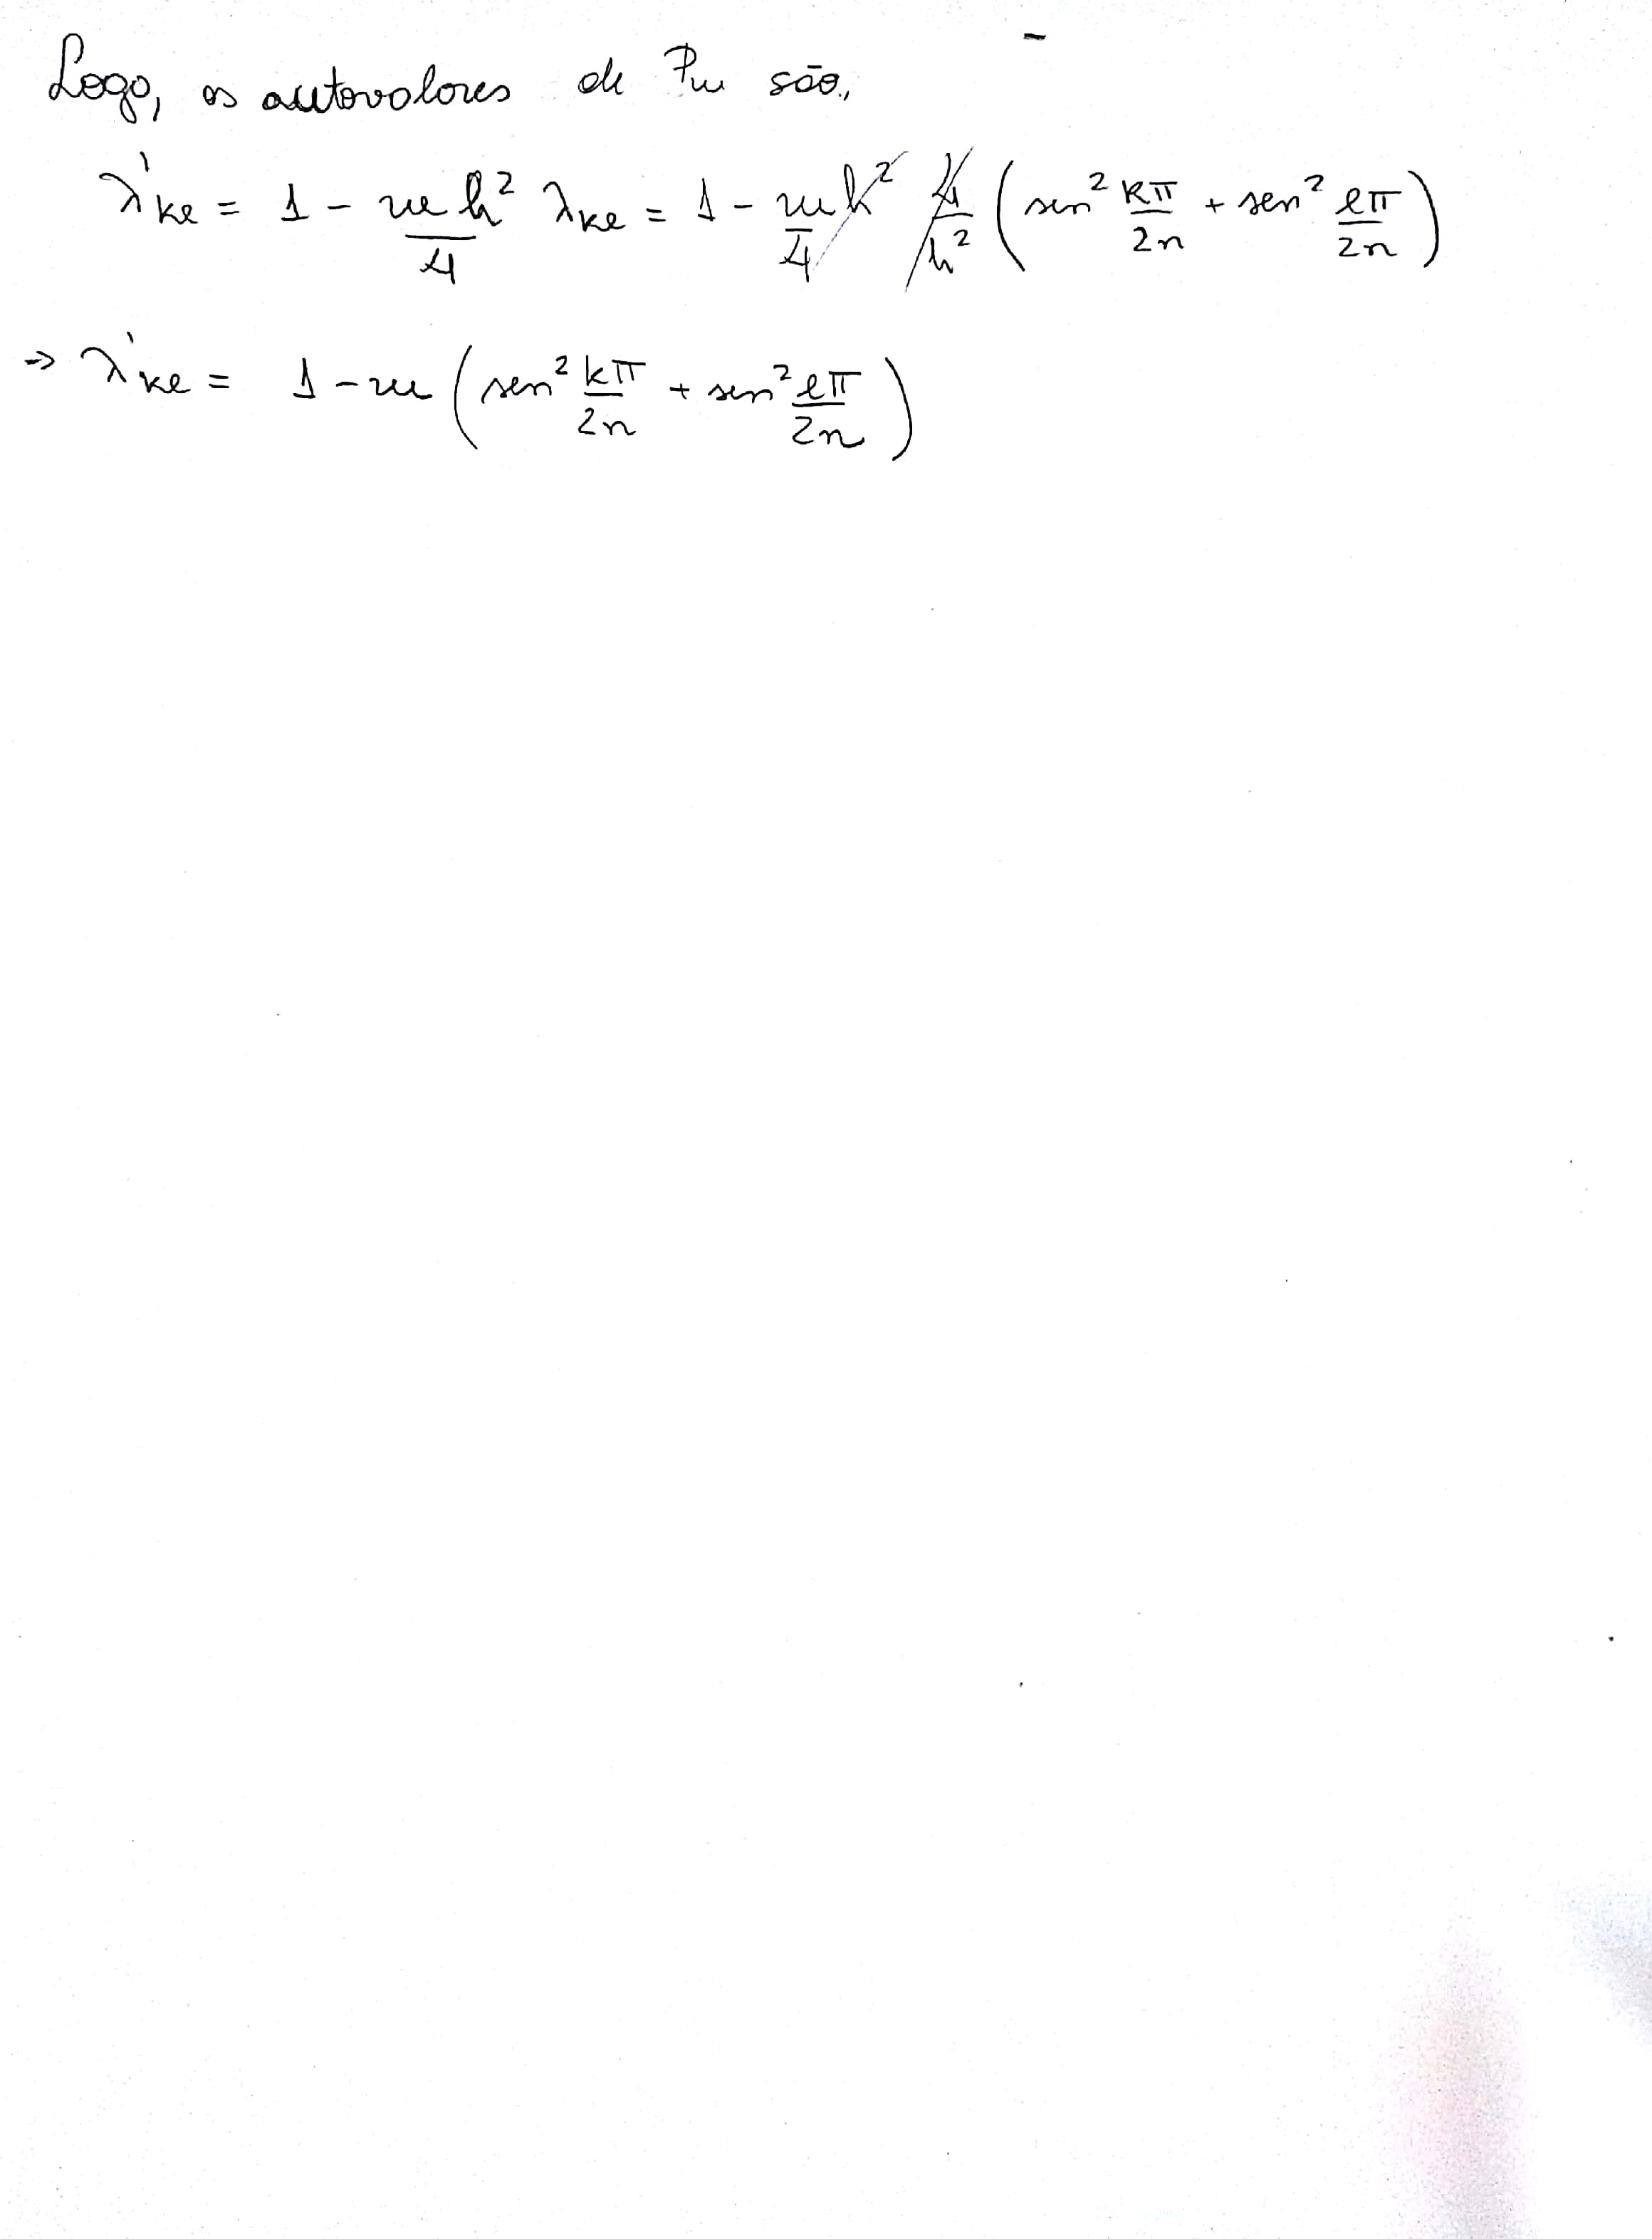 Logo, os autovalores de Pω são,
λ'kℓ = 1 - ωh²/4 λkℓ = 1 - ω/4 h² 4/h² (sen² kπ/2n + sen² ℓπ/2n)
⇒ λ'kℓ = 1 - ω (sen² kπ/2n + sen² ℓπ/2n)